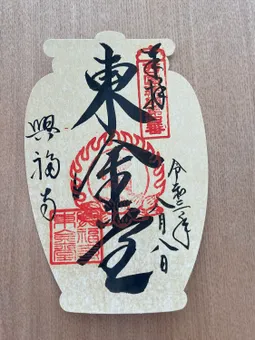 奉拝
令和二年
八月八日
東金堂
興福寺